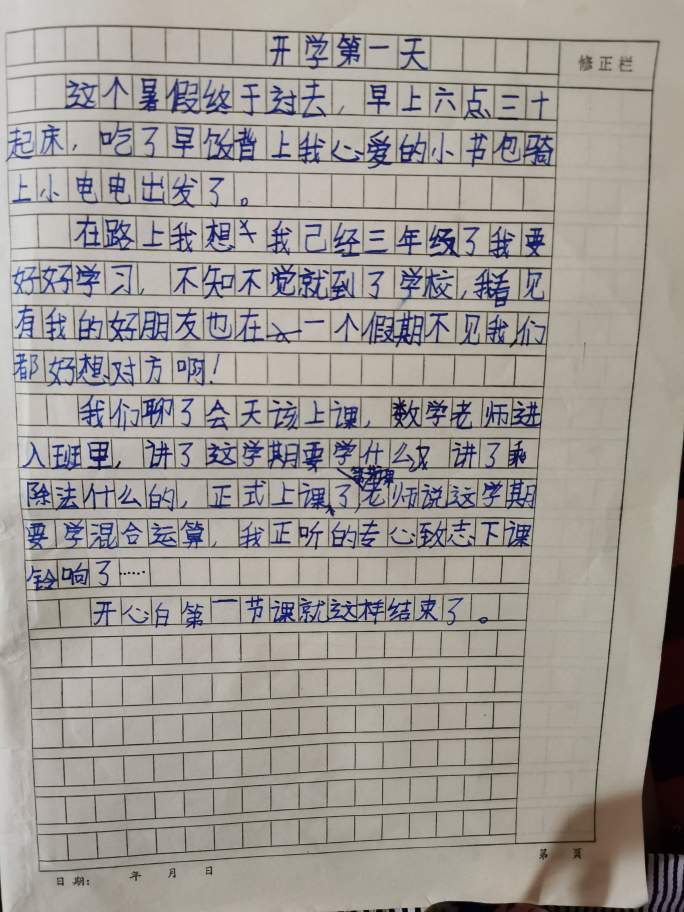 开学第一天
修正栏
这个暑假终于过去，早上六点三十
起床，吃了早饭背上我心爱的小书包骑
上小电电出发了。
在路上我想我已经三年级了我要
好好学习，不知不觉就到了学校，我看见
有我的好朋友也在一个假期不见我们
都好想对方啊！
我们聊了会天该上课，数学老师进
入班里，讲了这学期要学什么又讲了乘
除法什么的，正式上课了老师说这学期
要学混合运算，我正听的专心致志下课
铃响了……
开心白第一节课就这样结束了。
第 页
日期： 年 月 日